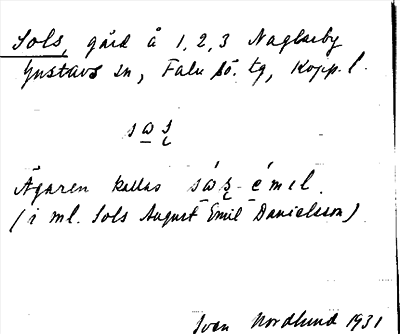 Sols, gård å 1, 2, 3 Naglarby
Gustavs sn, Falu sö. tg, Kopp. l.
sɷʂ
Ägaren kallas sɷ́ʂ-émil.
(i ml. Sols August Emil Danielsson)
Sven Nordlund 1931